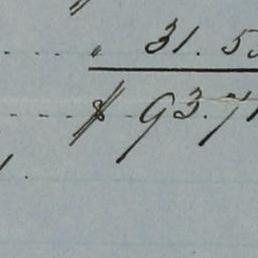 31.5
$ 93.7